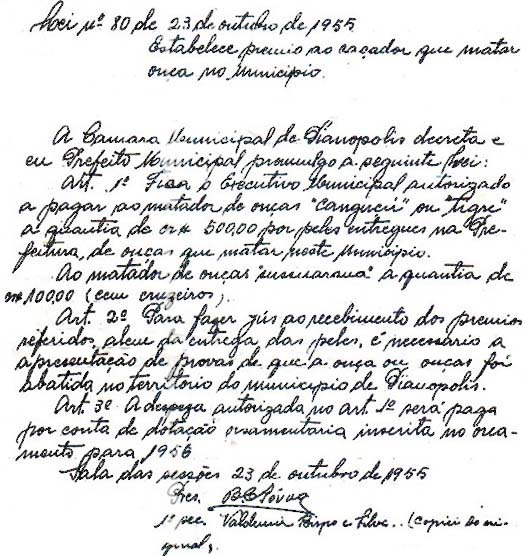 Lei nº 80 de 23 de outubro de 1955
Estabelece premio ao caçador que matar
onça no Municipio.
A Camara Municipal de Dianopolis decreta e
eu Prefeito Municipal promulgo a seguinte Lei:
Art. 1º Fica o Executivo Municipal autorizado
a pagar ao matador de onças "Cangucú" ou "tigre"
a quantia de cr$ 500,00 por peles entregues na Pre-
feitura, de onças que matar neste Municipio.
Ao matador de onças "sussuarana" a quantia de
cr$ 100,00 (cem cruzeiros).
Art. 2º Para fazer jús ao recebimento dos premios
referidos, alem da entrega das peles, é necessário a
apresentação de provas de que a onça ou onças foi
abatida no território do municipio de Dianopolis.
Art. 3º A despeza autorizada no art. 1º será paga
por conta de dotação orsamentaria inscrita no orca-
mento para 1956
Sala das sessões 23 de outubro de 1955
Pres. Póvoa
1º sec. Valdemir Bispo e Silva.. (copiei do ori-
ginal)